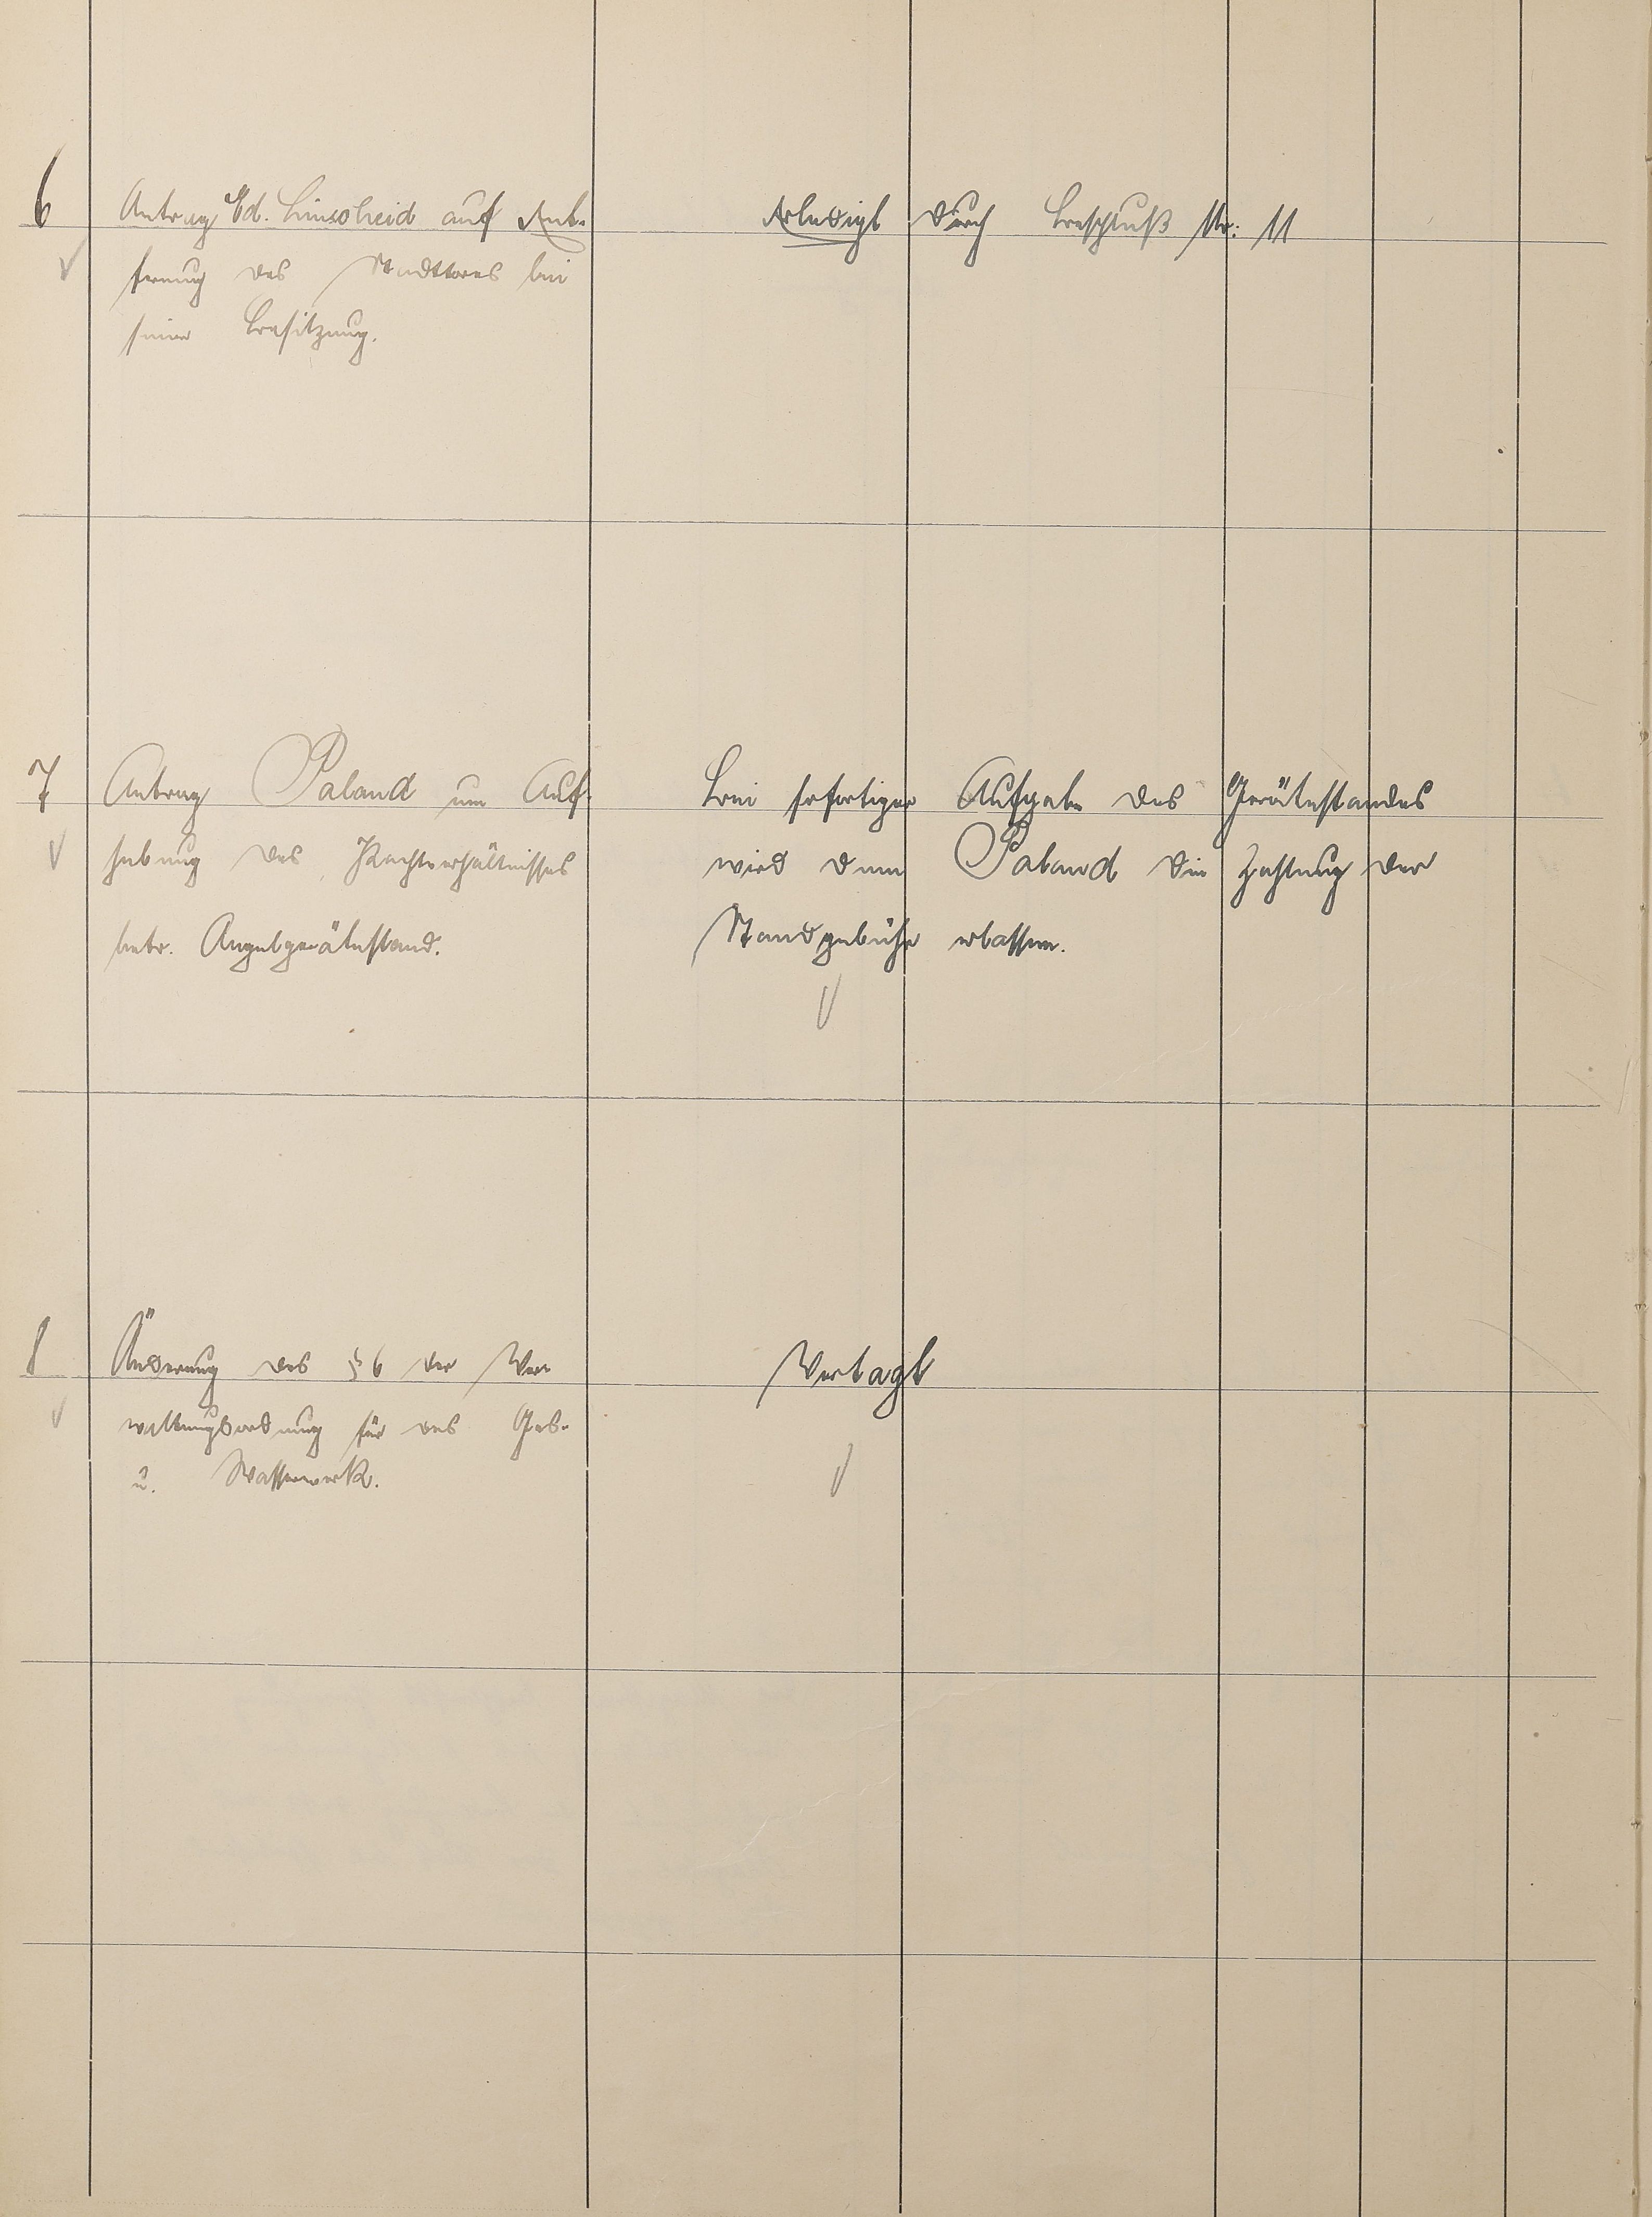 6 Antrag Ed. Linscheid auf Ent- Erledigt durch Beschluß Nr: 11
fernung des Stadttores bei
seiner Besitzung.
7 Antrag Paland um Auf- Bei sofortiger Aufgabe des Gerätestandes
hebung des Pachtverhältnisses wird dem Paland die Zahlung der
betr. Angelgerätestand. Standgebühr erlassen.
8 Änderung des § 6 der Ver- Vertagt
waltungsordnung für das Gas-
u. Wasserwerk.